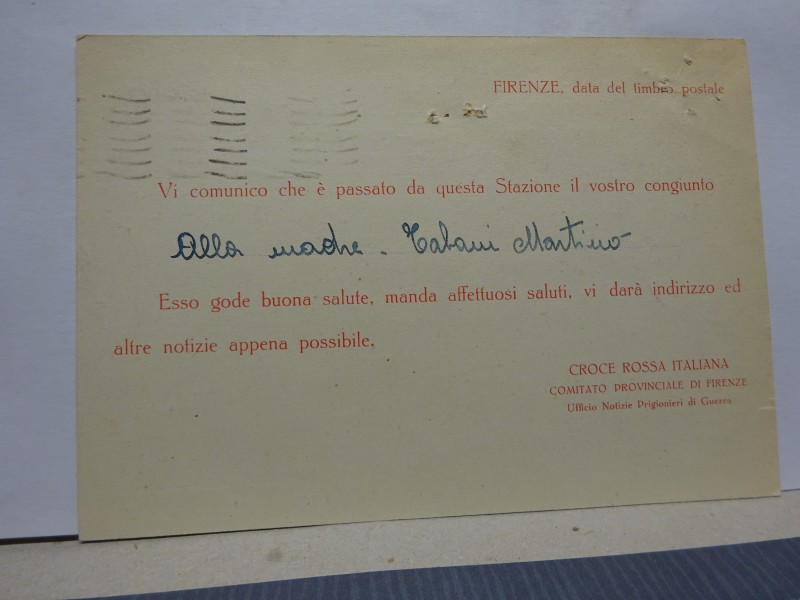 FIRENZE, data del timbro postale
Vi comunico che è passato da questa Stazione il vostro congiunto
Alla madre - Tabani Martino
Esso gode buona salute, manda affettuosi saluti, vi darà indirizzo ed
altre notizie appena possibile.
CROCE ROSSA ITALIANA
COMITATO PROVINCIALE DI FIRENZE
Ufficio Notizie Prigionieri di Guerra